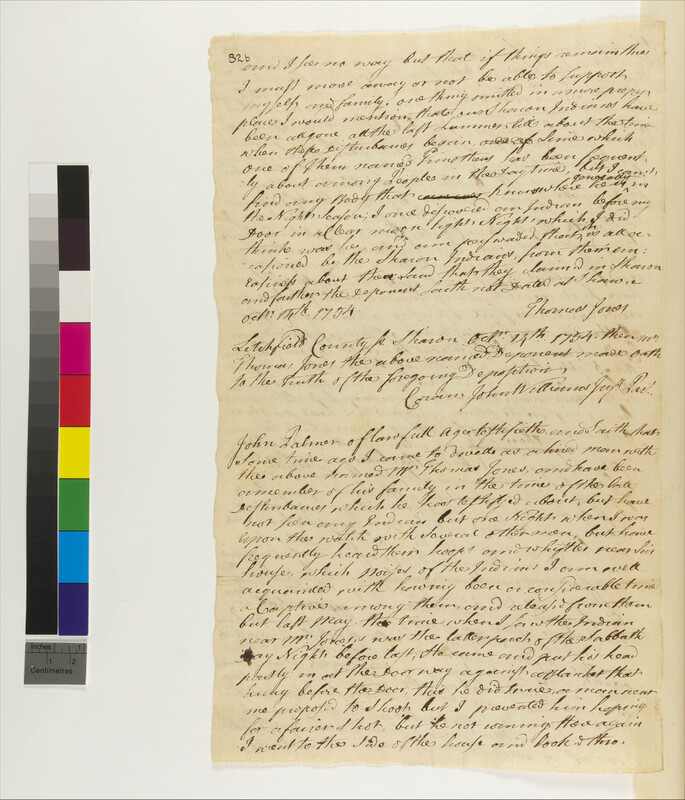 32b
and I see no way but that if things remain thus
I must move away or not be able to support
myself and family. one thing omitted in a more proper
place I would mention that our Sharon Indians have
been all gone all the last Summer till about the time
when these disturbances began since which
one of them named Timotheus has been frequent-
ly about among People in the Day time, but I cannot
find any Body that knows where he is generally in
the Night Season; I once discovered an Indian before my
Door in a Clear moon light Night which I did
think was he, and am perswaded that this is all oc-
casioned by the Sharon Indians, from their un-
easiness about the Land that they claim in Sharon
and farther the Deponent saith not Dated at Sharon
Octr 14th 1754
Thomas Jones
Litchfield County ss Sharon Octr 14th 1754 then Mr
Thomas Jones the above named Deponent made Oath
to the Truth of the foregoing Deposition,
Coram John Williams Just Pac.
John Palmer of lawfull Age testifieth and saith that
some time ago I came to dwell as a hired man with
the above named Mr Thomas Jones, and have been
a member of his family in the time of the late
disturbances which he has testifyed about, but have
not seen any Indian but one Night when I was
upon the watch with several other men, but have
frequently heard their hoops and whistles near said
house, which Noises of the Indians I am well
acquainted with having been a considerable time
a Captive among them, and releas'd from them
but last May the time when I saw the Indian
near Mr Jones's was the latter part of the Sabbath
Day Night before last, He came and put his head
partly in at the Door way against a blanket that
hung before the Door, this he did twice, a man near
me propos'd to shoot but I prevented him hoping
for a fairer shot, but he not coming there again
I went to the side of the house and look'd thro.
Inches
1
1
2
Centimetres